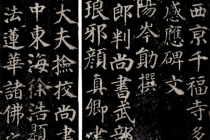 西京千福寺多
感應碑文
陽岑勛撰
郎判尚書武部
琅邪顏真卿書
大夫撿挍尚書
中東海徐浩題
法蓮華諸佛